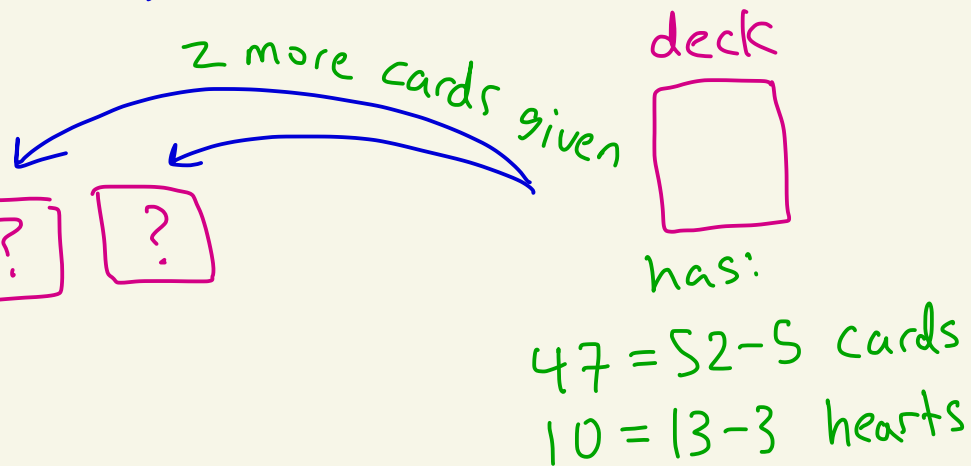 deck
2 more cards given
?
?
has:
47 = 52-5 cards
10 = 13-3 hearts